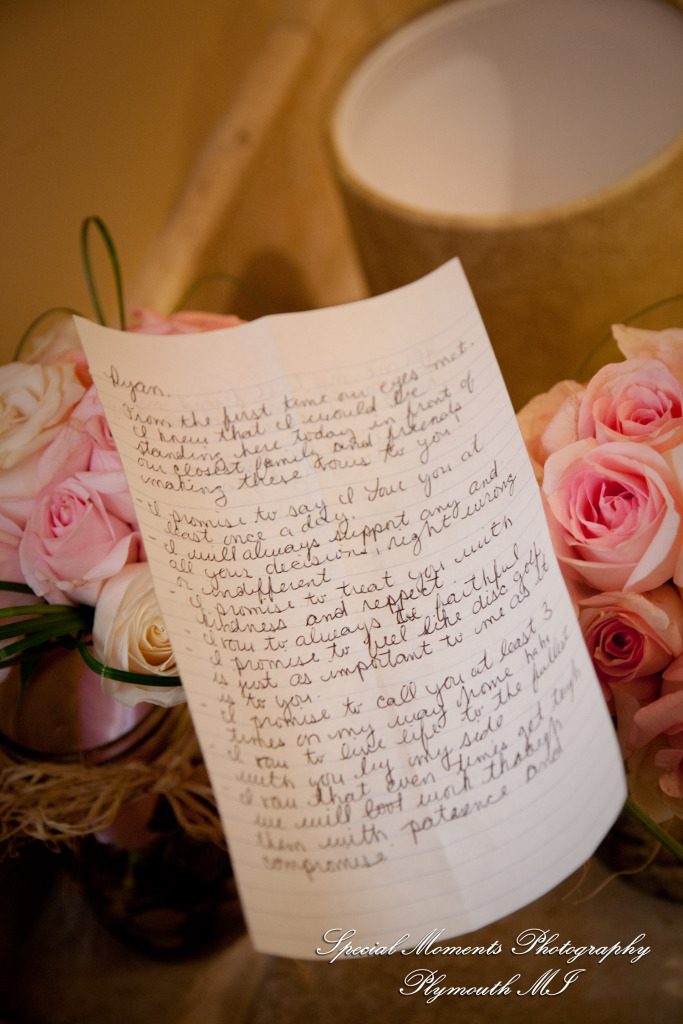 Ryan.
From the first time our eyes met.
I knew that I would be
standing here today in front of
our closest family and friends
making these vows to you
- I promise to say I love you at
least once a day.
- I will always support any and
all your decisions, right, wrong
or indifferent
- I promise to treat you with
kindness and respect.
- I vow to always be faithful
- I promise to feel like disc golf
is just as important to me as it
is to you.
- I promise to call you at least 3
times on my way home
- I vow to live life to the fullest
with you by my side
- I vow that even times get tough
we will work through
them with patience and
compromise
Special Moments Photography
Plymouth MI